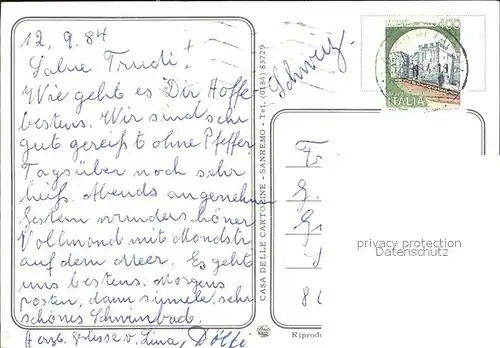 12. 9. 84
Salve Trudi!
Wie geht es Dir Hoffe
bestens. Wir sind sehr
gut gereißt ohne Pfeffer
Tagsüber noch sehr
heiß. Abends angenehm
Gestern wunderschöner
Vollmond mit Mondstr
auf dem Meer. Es geht
uns bestens. Morgens
posten, dann sünnele, sehr
schönes Schwimbad.
Herzl. Grüsse v. Lina, Dölfi
CASA DELLE CARTOLINE - SANREMO - Tel. (0184) 83729
Schweiz.
400
ITALIA
privacy protection
Datenschutz
8
Riprodu